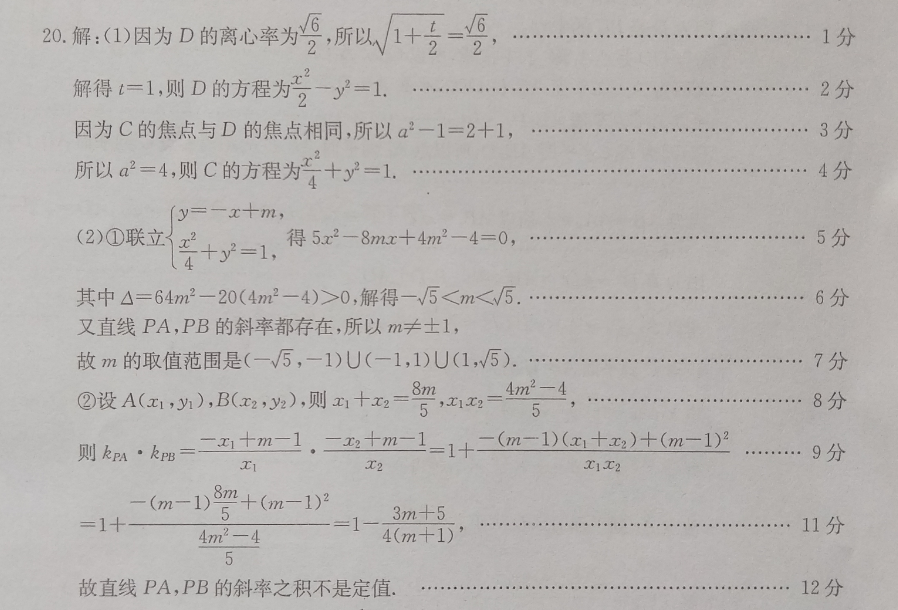 20.解:(1)因为 D 的离心率为√6/2,所以√(1+t/2)=√6/2, …… 1分
解得 t=1,则 D 的方程为x²/2-y²=1. …… 2分
因为 C 的焦点与 D 的焦点相同,所以 a²-1=2+1, …… 3分
所以 a²=4,则 C 的方程为x²/4+y²=1. …… 4分
(2)①联立{y=-x+m, x²/4+y²=1, 得 5x²-8mx+4m²-4=0, …… 5分
其中 Δ=64m²-20(4m²-4)>0,解得-√5<m<√5. …… 6分
又直线 PA,PB 的斜率都存在,所以 m≠±1,
故 m 的取值范围是(-√5,-1)∪(-1,1)∪(1,√5). …… 7分
②设 A(x₁,y₁),B(x₂,y₂),则 x₁+x₂=8m/5,x₁x₂=(4m²-4)/5, …… 8分
则 k_PA·k_PB=(-x₁+m-1)/x₁·(-x₂+m-1)/x₂=1+(-(m-1)(x₁+x₂)+(m-1)²)/(x₁x₂) …… 9分
=1+(-(m-1)8m/5+(m-1)²)/((4m²-4)/5)=1-(3m+5)/(4(m+1)), …… 11分
故直线 PA,PB 的斜率之积不是定值. …… 12分